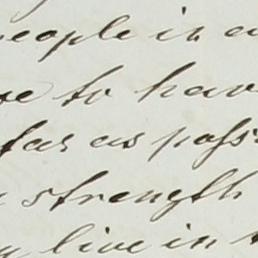 people in
to hav
far as poss
strength
live in